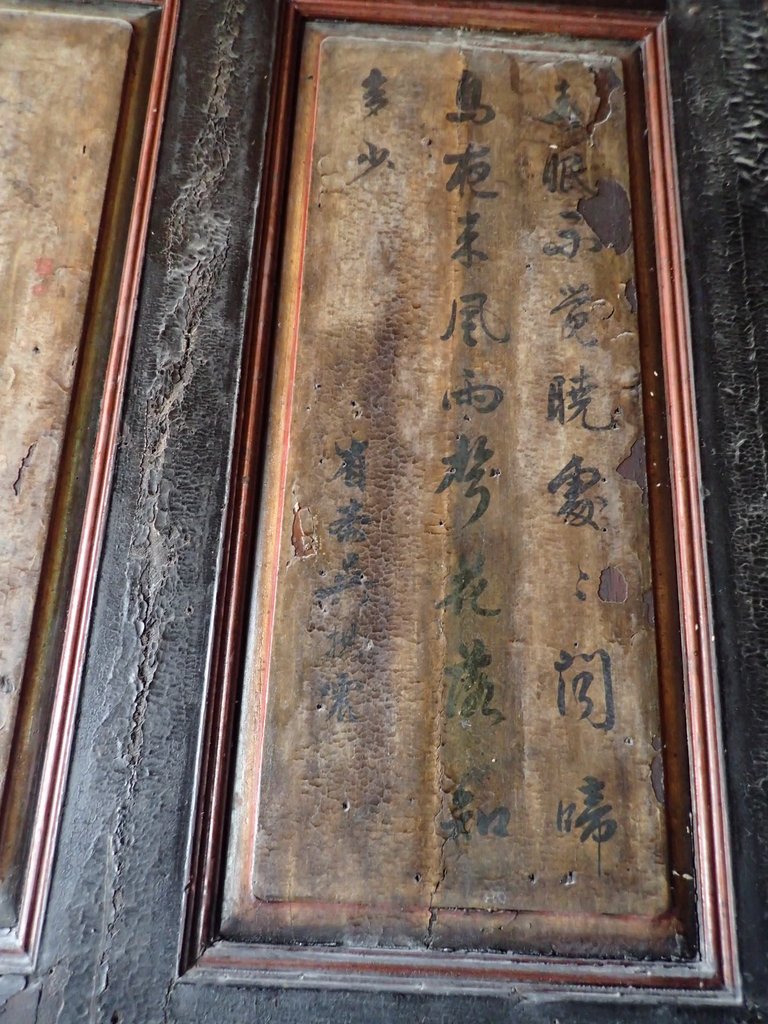 春眠不覺曉處〻聞啼
鳥夜來風雨聲花落知
多少